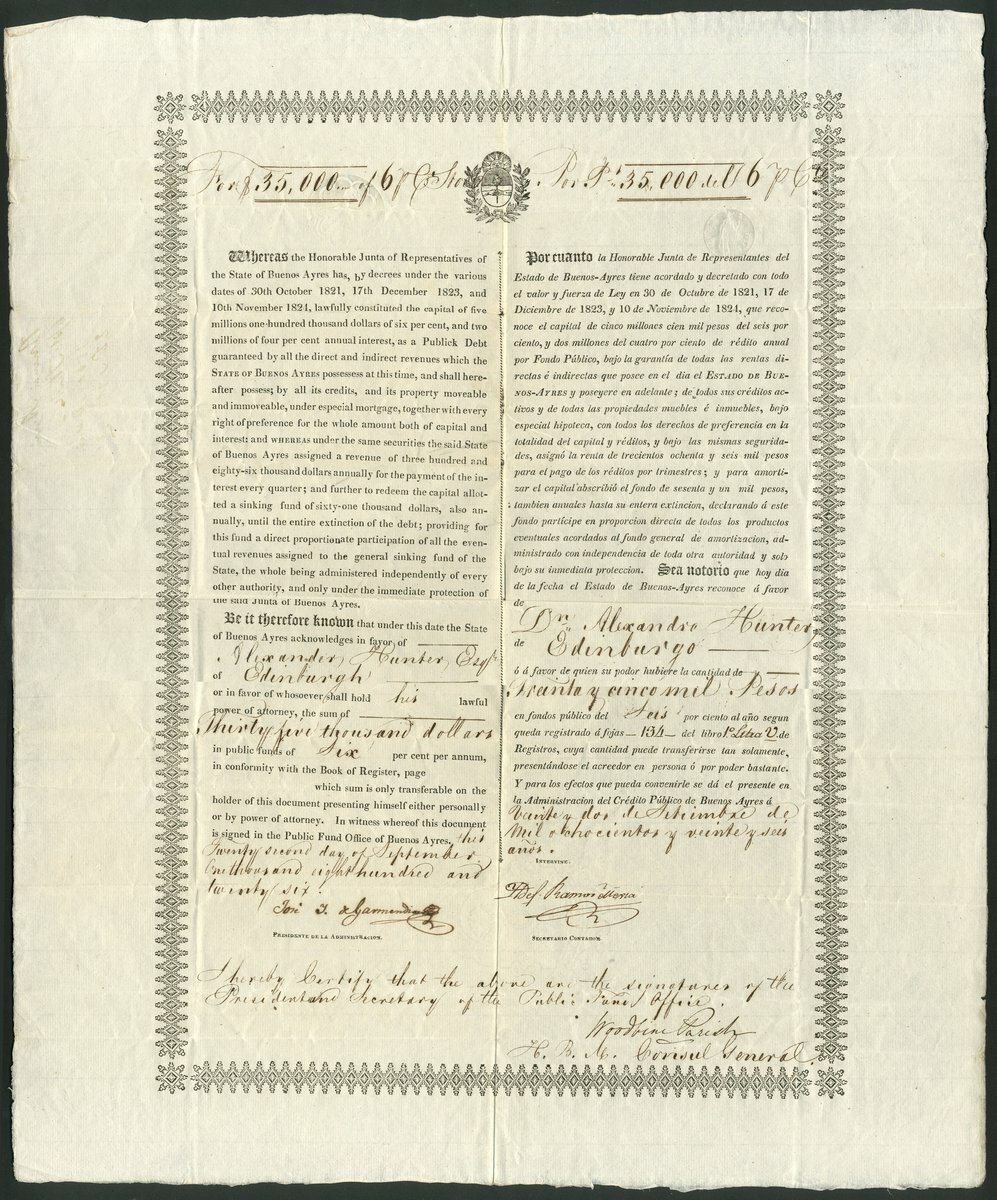 For $ 35,000 of 6 p Ct Stock
Por Ps 35,000 del 6 p Ct
Whereas the Honorable Junta of Representatives of
the State of Buenos Ayres has, by decrees under the various
dates of 30th October 1821, 17th December 1823, and
10th November 1824, lawfully constituted the capital of five
millions one-hundred thousand dollars of six per cent, and two
millions of four per cent annual interest, as a Publick Debt
guaranteed by all the direct and indirect revenues which the
STATE OF BUENOS AYRES possessess at this time, and shall here-
after possess; by all its credits, and its property moveable
and immoveable, under especial mortgage, together with every
right of preference for the whole amount both of capital and
interest: and WHEREAS under the same securities the said State
of Buenos Ayres assigned a revenue of three hundred and
eighty-six thousand dollars annually for the payment of the in-
terest every quarter; and further to redeem the capital allot-
ted a sinking fund of sixty-one thousand dollars, also an-
nually, until the entire extinction of the debt; providing for
this fund a direct proportionate participation of all the even-
tual revenues assigned to the general sinking fund of the
State, the whole being administered independently of every
other authority, and only under the immediate protection of
the said Junta of Buenos Ayres.
Be it therefore known that under this date the State
of Buenos Ayres acknowledges in favor of
Alexander Hunter, Esqr
of Edinburgh
or in favor of whosoever shall hold his lawful
power of attorney, the sum of
Thirty five thousand dollars
in public funds of Six per cent per annum,
in conformity with the Book of Register, page
which sum is only transferable on the
holder of this document presenting himself either personally
or by power of attorney. In witness whereof this document
is signed in the Public Fund Office of Buenos Ayres, this
Twenty second day of September
One thousand eight hundred and
twenty six.
José J. de Garmendia
PRESIDENTE DE LA ADMINISTRACION.
Por cuanto la Honorable Junta de Representantes del
Estado de Buenos-Ayres tiene acordado y decretado con todo
el valor y fuerza de Ley en 30 de Octubre de 1821, 17 de
Diciembre de 1823, y 10 de Noviembre de 1824, que reco-
noce el capital de cinco millones cien mil pesos del seis por
ciento, y dos millones del cuatro por ciento de rédito anual
por Fondo Público, bajo la garantía de todas las rentas di-
rectas é indirectas que posee en el dia el ESTADO DE BUE-
NOS-AYRES y poseyere en adelante; de todos sus créditos ac-
tivos y de todas las propiedades muebles é inmuebles, bajo
especial hipoteca, con todos los derechos de preferencia en la
totalidad del capital y réditos, y bajo las mismas segurida-
des, asignó la renta de trecientos ochenta y seis mil pesos
para el pago de los réditos por trimestres; y para amorti-
zar el capital abscribió el fondo de sesenta y un mil pesos,
tambien anuales hasta su entera extincion, declarando á este
fondo partícipe en proporcion directa de todos los productos
eventuales acordados al fondo general de amortizacion, ad-
ministrado con independencia de toda otra autoridad y solo
bajo su inmediata proteccion. Sea notorio que hoy dia
de la fecha el Estado de Buenos-Ayres reconoce á favor
de
Dn Alexandro Hunter,
de Edinburgo
ó á favor de quien su podor hubiere la cantidad de
Treinta y cinco mil Pesos
en fondos público del Seis por ciento al año segun
queda registrado á fojas 134 del libro 1º Letra V. de
Registros, cuya cantidad puede transferirse tan solamente,
presentándose el acreedor en persona ó por poder bastante.
Y para los efectos que pueda convenirle se dá el presente en
la Administracion del Crédito Público de Buenos Ayres á
Veinte y dos de Setiembre de
Mil ochocientos y veinte y seis
años.
INTERVINE.
SECRETARIO CONTADOR.
I hereby Certify that the above are the signatures of the
President and Secretary of the Public Fund Office.
Woodbine Parish
H. B. M. Consul General.